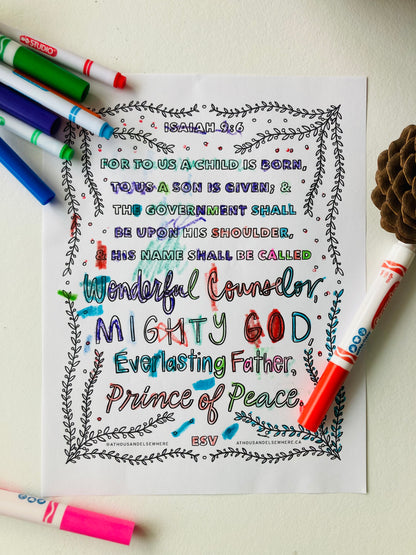 STUDIO
ISAIAH 9:6
FOR TO US A CHILD IS BORN,
TO US A SON IS GIVEN; &
THE GOVERNMENT SHALL
BE UPON HIS SHOULDER,
& HIS NAME SHALL BE CALLED
Wonderful Counselor,
MIGHTY GOD,
Everlasting Father,
Prince of Peace.
@ATHOUSANDELSEWHERE
ESV
ATHOUSANDELSEWHERE.CA